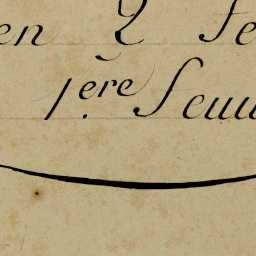 en 2 fe
1.ère feuil